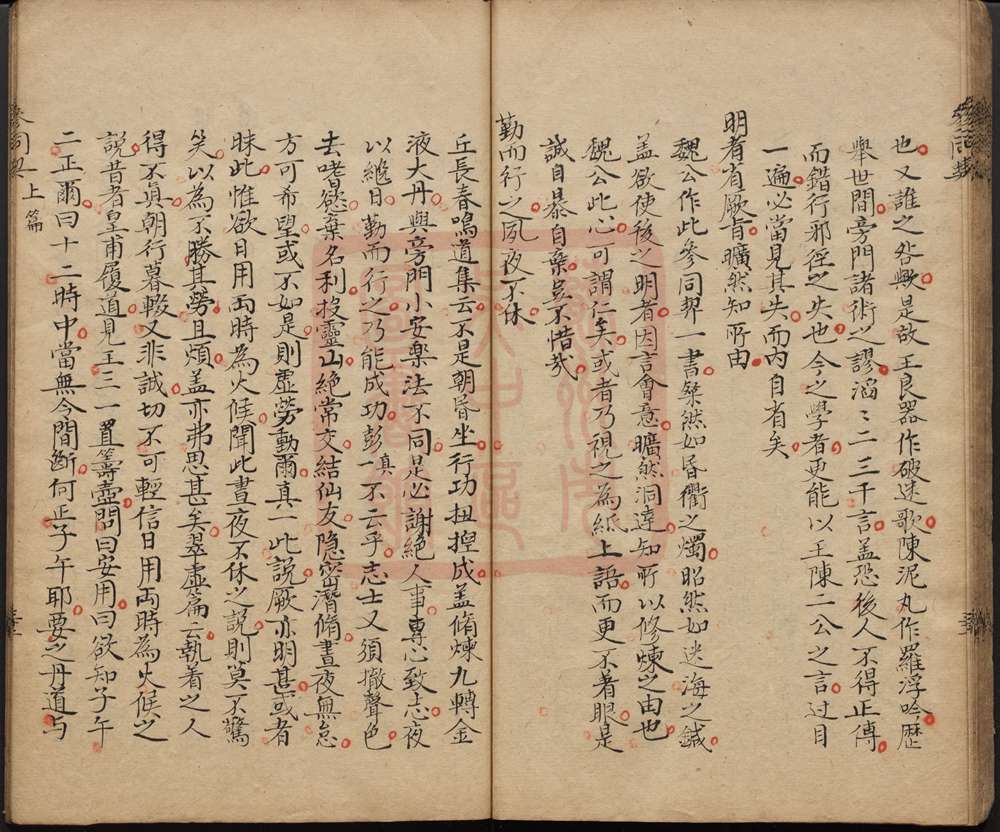 也又誰之咎歟是故王良器作破迷歌陳泥丸作羅浮吟歷
舉世間旁門諸術之謬滔〻二三千言盖恐後人不得正傳
而錯行邪徑之失也今之學者更能以王陳二公之言過目
一遍必當見其失而內自省矣
明者省厥旨曠然知所由
魏公作此參同契一書粲然如昏衢之燭昭然如迷海之鍼
盖欲使後之明者因言會意曠然洞達知所以修煉之由也
魏公此心可謂仁矣或者乃視之為紙上語而更不着眼是
誠自暴自棄吴不惜哉
勤而行之夙夜不休
丘長春鳴道集云不是朝昏坐行功扭捏成盖脩煉九轉金
液大丹與旁門小安樂法不同是必謝絕人事專心致志夜
以繼日勤而行之乃能成功彭真一不云乎志士又須撤聲色
去嗜慾棄名利投靈山絕常交結仙友隐密潛脩晝夜無怠
方可希望或不如是則虛勞動爾真一此說厥亦明甚或者
昧此惟欲日用兩時為火候聞此晝夜不休之說則莫不驚
笑以為不勝其勞且煩盖亦弗思甚矣翠虛篇云執着之人
得不真朝行暮輟又非誠切不可輕信日用兩時為火候之
說昔者皇甫履道見王三一置籌壺問曰安用曰欲知子午
二正爾曰十二時中當無令間斷何正子午耶要之丹道与
參同契 上篇